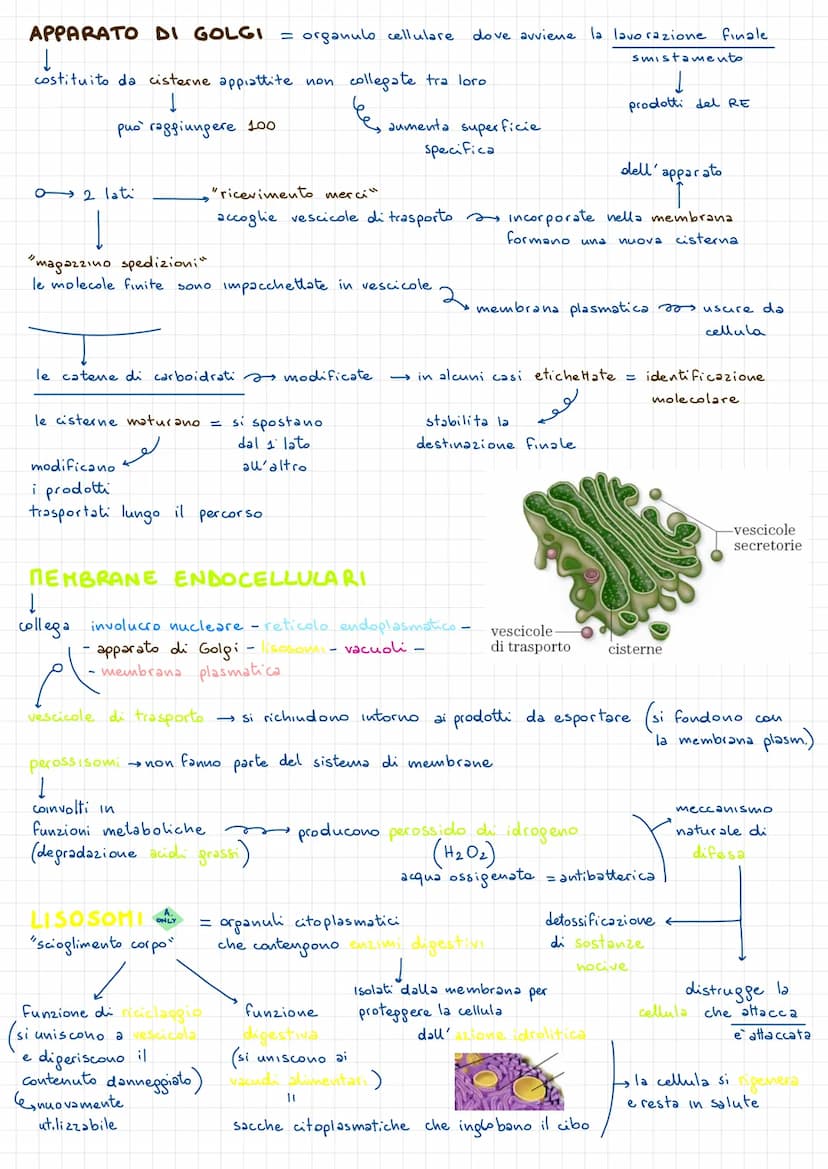 APPARATO DI GOLGI = organulo cellulare dove avviene la lavorazione finale
smistamento
↓
prodotti del RE
costituito da cisterne appiattite non collegate tra loro
può raggiungere 100
aumenta superficie
specifica
dell'apparato
2 lati → "ricevimento merci"
accoglie vescicole di trasporto → incorporate nella membrana
formano una nuova cisterna
"magazzino spedizioni"
le molecole finite sono impacchettate in vescicole
membrana plasmatica → uscire da
cellula
le catene di carboidrati → modificate → in alcuni casi etichettate = identificazione
molecolare
stabilita la
destinazione finale
le cisterne maturano = si spostano
dal 1° lato
all'altro
modificano
i prodotti
trasportati lungo il percorso
vescicole
secretorie
vescicole
di trasporto
cisterne
MEMBRANE ENDOCELLULARI
collega involucro nucleare - reticolo endoplasmatico -
- apparato di Golgi - lisosomi - vacuoli -
- membrana plasmatica
vescicole di trasporto → si richiudono intorno ai prodotti da esportare (si fondono con
la membrana plasm.)
perossisomi → non fanno parte del sistema di membrane
coinvolti in
funzioni metaboliche → producono perossido di idrogeno
(degradazione acidi grassi)
(H2O2)
acqua ossigenata = antibatterica
meccanismo
naturale di
difesa
detossificazione
di sostanze
nocive
distrugge la
cellula che attacca
è attaccata
LISOSOMI A. ONLY = organuli citoplasmatici
"scioglimento corpo"
che contengono enzimi digestivi
Isolati dalla membrana per
proteggere la cellula
dall'azione idrolitica
Funzione di riciclaggio
(si uniscono a vescicola
e digeriscono il
contenuto danneggiato)
nuovamente
utilizzabile
funzione
digestiva
(si uniscono ai
vacuoli alimentari)
=
sacche citoplasmatiche che inglobano il cibo
la cellula si rigenera
e resta in salute